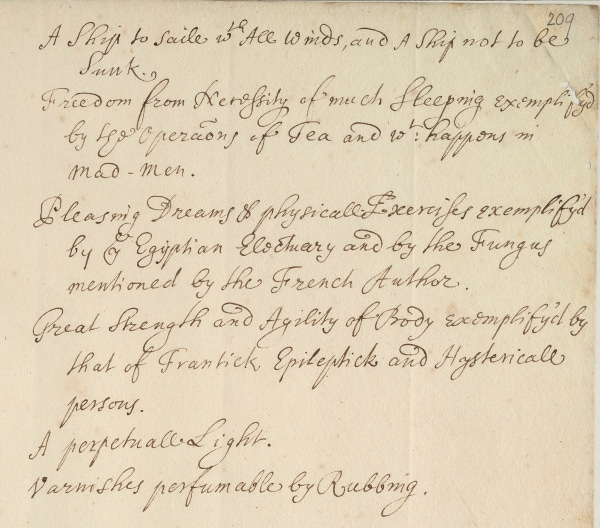 209
A Ship to saile wth All winds, and A Ship not to be
Sunk.
Freedom from Necessity of much Sleeping exemplify'd
by the Operaõns of Tea and wt: happens in
mad-men.
Pleasing Dreams & physicall Exercises exemplify'd
by ye Egyptian Electuary and by the Fungus
mentioned by the French Author.
Great Strength and Agility of Body exemplify'd by
that of Frantick Epileptick and Hystericall
persons.
A perpetuall Light.
Varnishes perfumable by Rubbing.